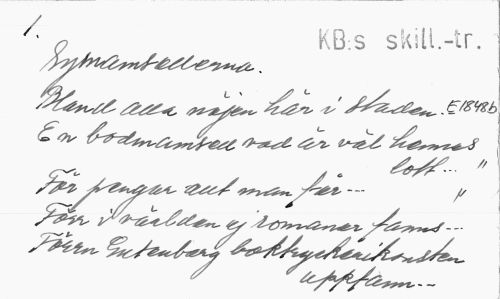 1.
KB:s skill.-tr.
Symamsellerna.
Bland alla nöjen här i staden. E1848b
En bodmamsell vad är väl hennes
lott... "
För pengar allt man får... "
Förr i världen ej romaner fanns...
Förrn Gutenberg boktryckerikonsten
uppfann...